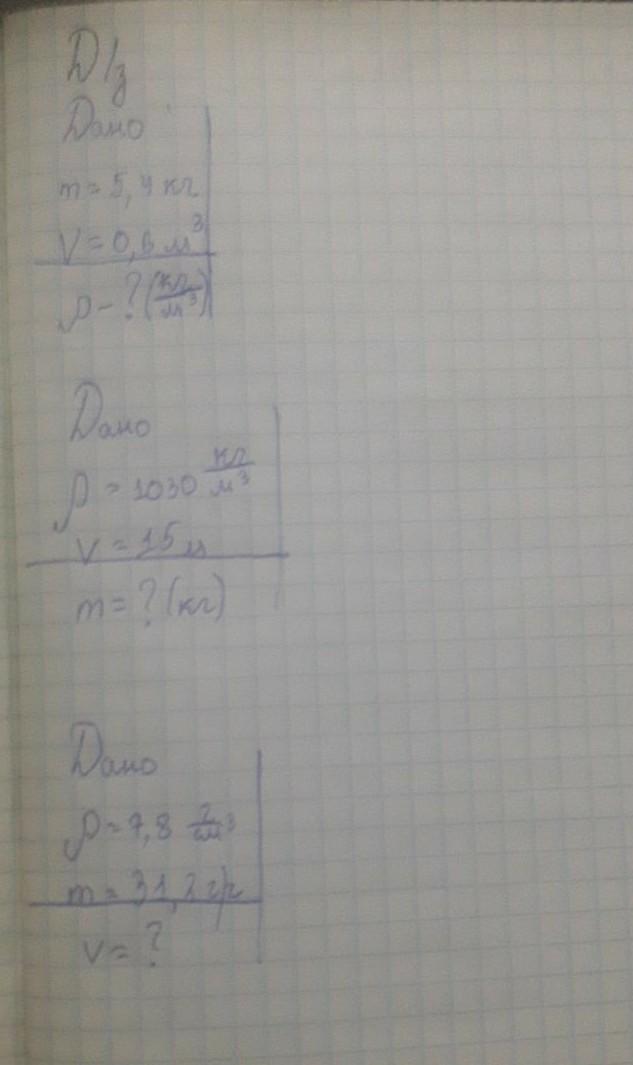 D/з
Дано
m = 5,4 кг
V = 0,6 м³
ρ - ? (кг/м³)
Дано
ρ = 1030 кг/м³
V = 15 м
m = ? (кг)
Дано
ρ = 7,8 г/см³
m = 31,2 г
V = ?